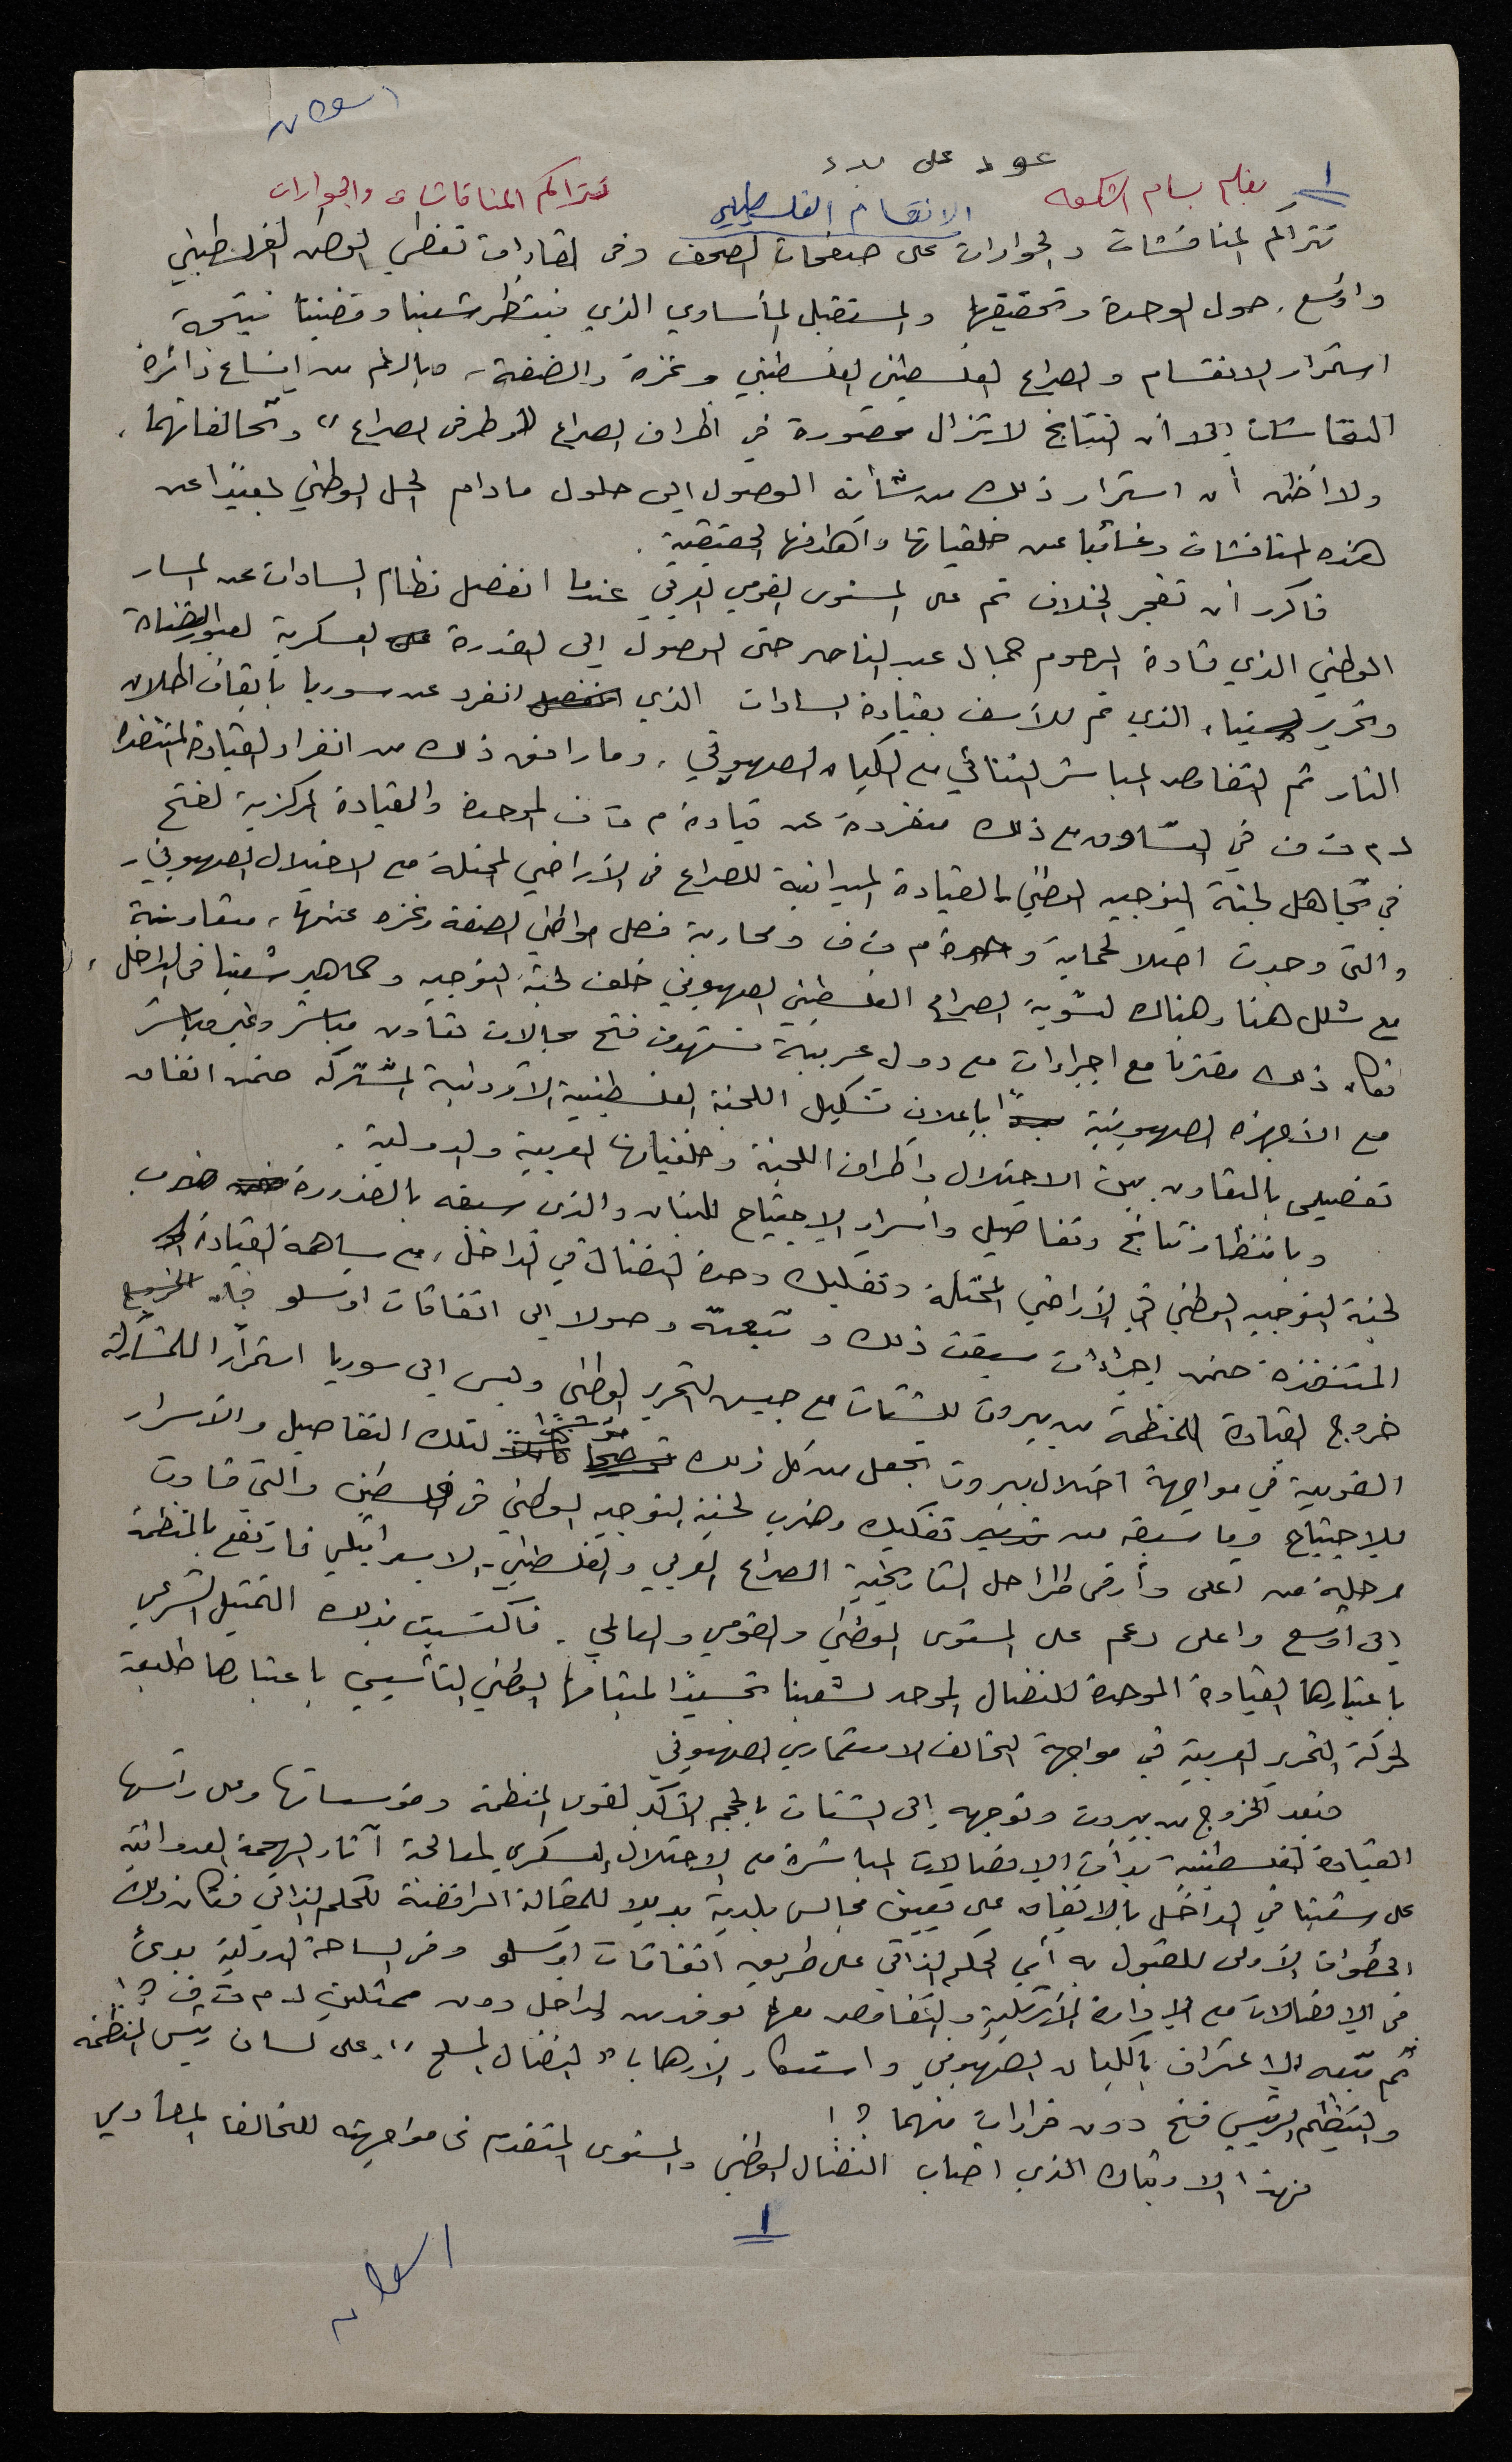 عود على بدء
١ بقلم بسام الشكعه
الانقسام الفلسطيني
تتراكم المناقشات والحوارات
تتراكم المناقشات والحوارات على صفحات الصحف وفي لقاءات تغطي الوطن الفلسطيني
واوسع، حول الوحدة وتحقيقها والمستقبل المأساوي الذي ينتظر شعبنا وقضيتنا نتيجة
استمرار الانقسام والصراع الفلسطيني الفلسطيني وغزة والضفة، وبالرغم من اتساع دائرة
النقاشات إلا أن النتائج لا تزال محصورة في اطراف الصراع "او طرفي الصراع" وتحالفاتهما.
ولا اظن أن استمرار ذلك من شأنه الوصول الى حلول مادام الحل الوطني بعيدًا عن
هذه المناقشات وغائبا عن خلفياتها واهدافها الحقيقية.
فاكرر ان تفجر الخلاف تم على المستوى القومي العربي عندما انفصل نظام السادات عن المسار
الوطني الذي قادة المرحوم جمال عبد الناصر حتى الوصول الى القدرة العسكرية لعبور القناة
وتحرير سيناء، الذي تم للأسف بقيادة السادات الذي انفرد عن سوريا بايقاف اطلاق
النار ثم التفاوض المباشر الثنائي مع الكيان الصهيوني، وما رافق ذلك من انفراد القيادة المتنفذة
لـ م ت ف في التساوق مع ذلك منفردة عن قيادة م ت ف الموحدة والقيادة المركزية لفتح
في تجاهل لجنة التوجيه الوطني "القيادة الميدانية للصراع في الأراضي المحتلة مع الاحتلال الصهيوني،
والتي وجدت اصلا لحماية وحدة م ت ف ومحاربة فصل مواطني الضفة وغزه عنها، متعاونة
مع شلل هنا وهناك لتسوية الصراع الفلسطيني الصهيوني خلف لجنة التوجيه وجماهير شعبنا في الداخل،
فكان ذلك مقترنا مع اجراءات مع دول عربية تستهدف فتح مجالات تعاون مباشر وغير مباشر
مع الأجهزه الصهيونية بإعلان تشكيل اللجنة الفلسطينية الأردنية المشتركه ضمن اتفاق
تفصيلي بالتعاون بين الاحتلال واطراف اللجنة وخلفياتها العربية والدولية.
وبانتظار نتائج وتفاصيل وأسرار الاجتياح للبنان والذي سبقه بالضرورة ضرب
لجنة التوجيه الوطني في الأراضي المحتلة وتفكيك وحدة النضال في الداخل، مع مساهمة القيادة
المتنفذة ضمن اجراءات سبقت ذلك وتبعته وصولا الى اتفاقات اوسلو فإن
خروج القيادة للمنظمة من بيروت للشتات مع جيش التحرير الوطني وليس الى سوريا استمرارًا للمشاركة
القومية في مواجهة احتلال بيروت تجعل من كل ذلك مؤشرًا لتلك التفاصيل والأسرار
للاجتياح وما سبقه من تفكيك وضرب لجنة التوجيه الوطني في فلسطين والتي قادت
مرحلة من اعلى وأرقى المراحل التاريخية الصراع العربي والفلسطيني - الاسرائيلي فارتفع بالمنظمة
إلى اوسع واعلى دعم على المستوى الوطني والقومي والعالمي. فاكتسبت بذلك التمثيل الشرعي
باعتبارها القيادة الموحدة للنضال الموحد لشعبنا تجسيدًا لميثاقها الوطني التأسيسي باعتبارها طليعة
لحركة التحرير العربية في مواجهة التحالف الاستعماري الصهيوني
فبعد الخروج من بيروت وتوجهه إلى الشتات بالحجم الأكبر لقوى المنظمة ومؤسساتها وعلى رأسها
القيادة الفلسطينية بدأت الاتصالات المباشرة مع الاحتلال العسكري لمعالجة آثار الهجمة العدوانية
على شعبنا في الداخل بالاتفاق على تعيين مجالس بلدية بديلا للمقالة الرافضة للحكم الذاتي فكان ذلك
الخطوات الأولى للقبول به أي الحكم الذاتي على طريق اتفاقات اوسلو وفي الساحة الدولية بدئ
في الاتصالات مع الإدارة الأمريكية والتفاوض معها بوفد من الداخل دون ممثلين لـ م ت ف ؟!
ثم تبعه الاعتراف بالكيان الصهيوني واستنكار الارهاب "النضال المسلح"، على لسان رئيس المنظمة
والتنظيم الرئيسي فتح دون قرارات منهما ؟!
فهذا الارتباك الذي اصاب النضال الوطني والمستوى المتقدم في مواجهته للتحالف المعادي
١